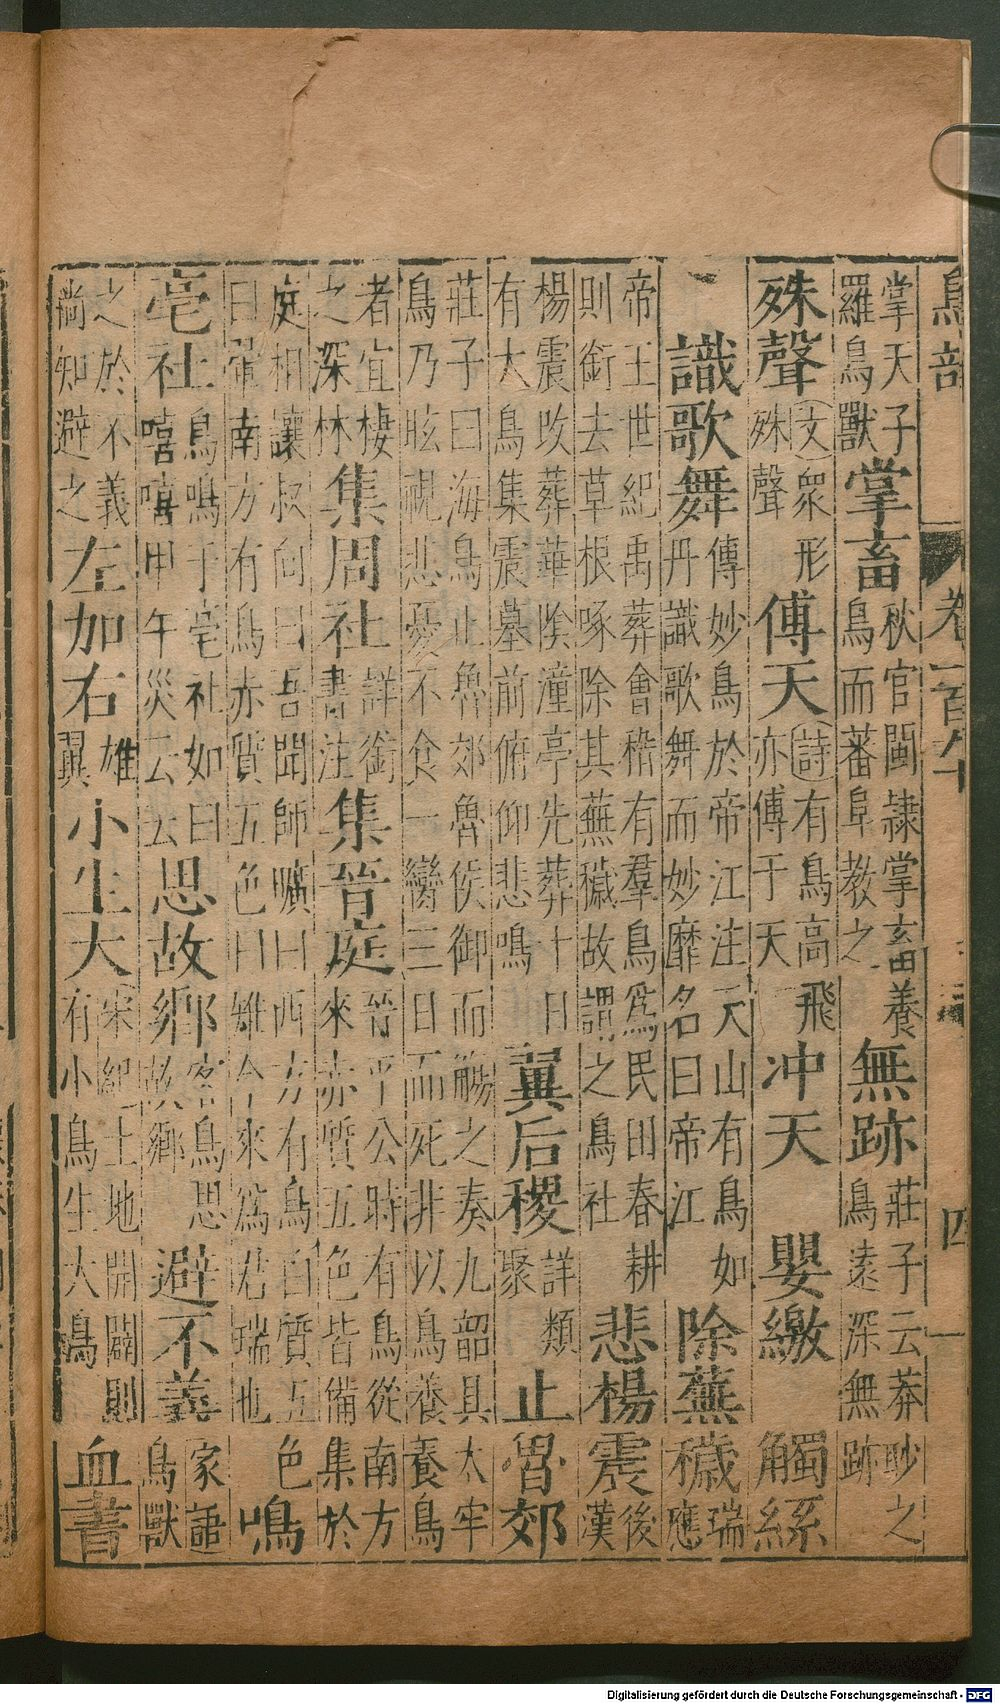 鳥部 卷一百八十 四
掌天子羅鳥獸 掌畜 秋官閩隸掌畜養鳥而蕃阜教之 無跡 莊子云莽眇之鳥遠深無跡
殊聲 文衆形殊聲 傅天 詩有鳥高飛亦傅于天 冲天 嬰繳 觸絲
識歌舞 傳妙鳥於帝江注天山有鳥如丹識歌舞而妙靡名曰帝江 除蕪穢 瑞應
帝王世紀禹葬會稽有羣鳥爲民田春耕則銜去草根啄除其蕪穢故謂之鳥社 悲楊震 後漢
楊震改葬華隂潼亭先葬十日有大鳥集震墓前俯仰悲鳴 翼后稷 詳類聚 止魯郊
莊子曰海鳥止魯郊魯侯御而觴之奏九韶具太牢鳥乃眩視悲憂不食一臠三日而死非以鳥養養鳥
者宜棲之深林 集周社 詳銜書注 集晉庭 晉平公時有鳥從南方來赤質五色皆備集於
庭相讓叔向曰吾聞師曠曰西方有鳥白質五色曰翬南方有鳥赤質五色曰雉今來爲君瑞也 鳴
亳社 鳥鳴于亳社如曰嘻嘻甲午災云云 思故鄉 客鳥思故鄉 避不義 家語鳥獸
之於不義尚知避之 左加右 雄翼 小生大 宋紀土地開闢則有小鳥生大鳥 血書
Digitalisierung gefördert durch die Deutsche Forschungsgemeinschaft - DFG